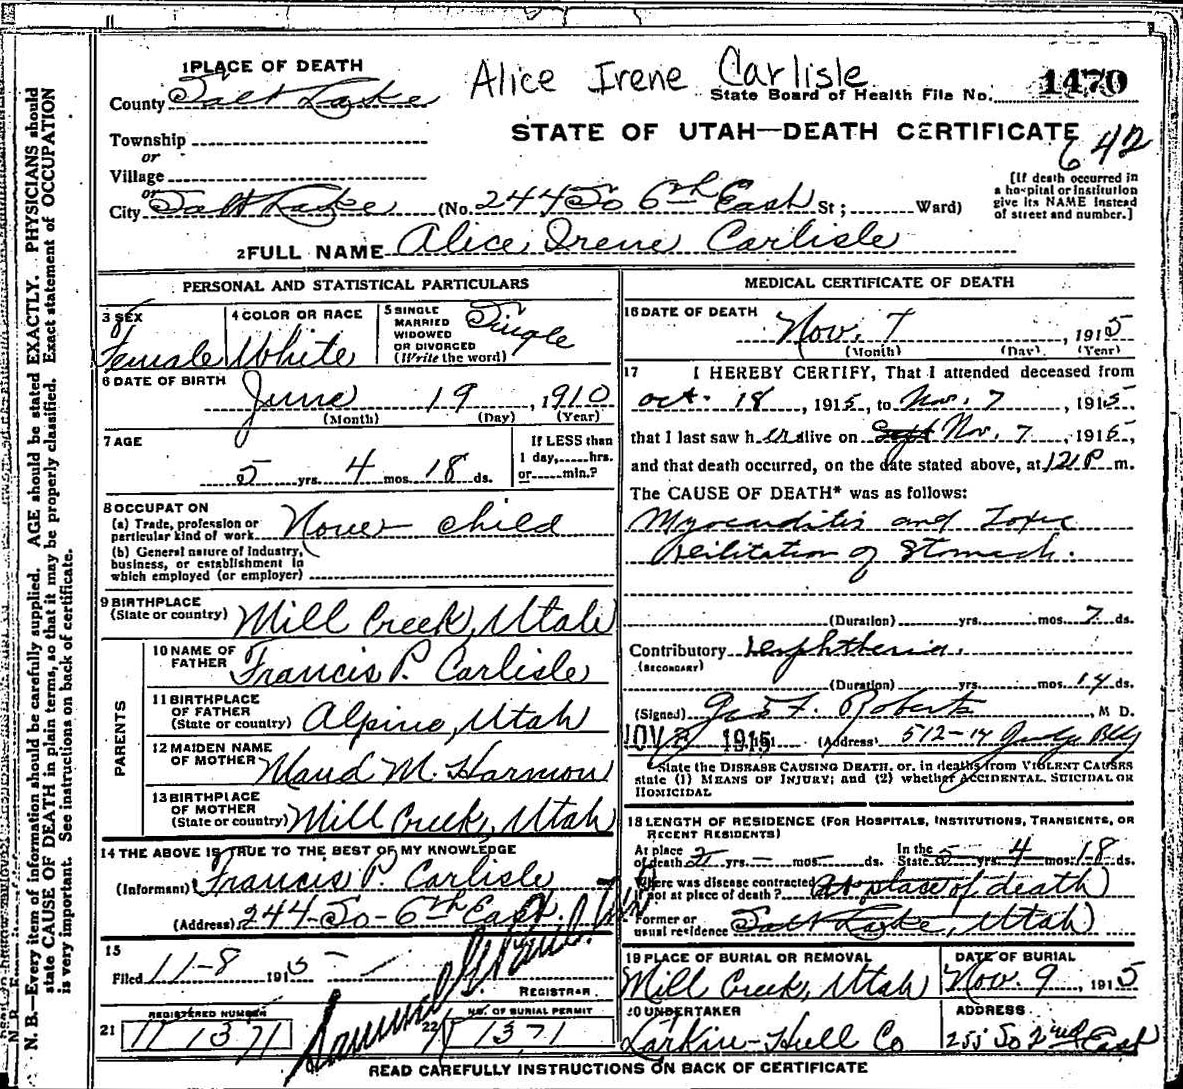 1 PLACE OF DEATH
Alice Irene Carlisle
County Salt Lake
State Board of Health File No. 1470
Township
STATE OF UTAH—DEATH CERTIFICATE
or
642
Village
or
City Salt Lake (No. 244 So 6th East St; Ward)
[If death occurred in a hospital or institution give its NAME instead of street and number.]
2 FULL NAME Alice Irene Carlisle
PERSONAL AND STATISTICAL PARTICULARS
3 SEX Female
4 COLOR OR RACE White
5 SINGLE MARRIED WIDOWED OR DIVORCED (Write the word) Single
6 DATE OF BIRTH June 19, 1910
(Month) (Day) (Year)
7 AGE
If LESS than 1 day, hrs. or min.?
5 yrs. 4 mos. 18 ds.
8 OCCUPATION
(a) Trade, profession or particular kind of work None child
(b) General nature of Industry, business, or establishment in which employed (or employer)
9 BIRTHPLACE (State or country) Mill Creek, Utah
PARENTS
10 NAME OF FATHER Francis P. Carlisle
11 BIRTHPLACE OF FATHER (State or country) Alpine, Utah
12 MAIDEN NAME OF MOTHER Maud M. Harmon
13 BIRTHPLACE OF MOTHER (State or country) Mill Creek, Utah
14 THE ABOVE IS TRUE TO THE BEST OF MY KNOWLEDGE
(Informant) Francis P. Carlisle
(Address) 244-So-6th East.
15
Filed 11-8 1915
REGISTRAR
REGISTERED NUMBER
21 1371
NO. OF BURIAL PERMIT
22 1371
MEDICAL CERTIFICATE OF DEATH
16 DATE OF DEATH
Nov. 7, 1915
(Month) (Day) (Year)
17 I HEREBY CERTIFY, That I attended deceased from
Oct. 18, 1915, to Nov. 7, 1915,
that I last saw her alive on Sept Nov. 7, 1915,
and that death occurred, on the date stated above, at 121 P m.
The CAUSE OF DEATH* was as follows:
Myocarditis and Toxic
of Stomach.
(Duration) yrs. mos. 7 ds.
Contributory Diphtheria.
(SECONDARY)
(Duration) yrs. mos. 14 ds.
(Signed) Geo F. Roberts, M D.
NOV 8 1915 (Address) 512-14 Judge Bldg
State the DISEASE CAUSING DEATH, or, in deaths from VIOLENT CAUSES state (1) MEANS OF INJURY; and (2) whether ACCIDENTAL, SUICIDAL OR HOMICIDAL
18 LENGTH OF RESIDENCE (FOR HOSPITALS, INSTITUTIONS, TRANSIENTS, OR RECENT RESIDENTS)
At place of death 2 yrs. - mos - ds. In the State 5 yrs. 4 mos. 18 ds.
Where was disease contracted if not at place of death? At place of death
Former or usual residence Salt Lake, Utah
19 PLACE OF BURIAL OR REMOVAL
Mill Creek, Utah
DATE OF BURIAL
Nov. 9, 1915
20 UNDERTAKER
Larkin-Hull Co
ADDRESS
255 So 2nd East
READ CAREFULLY INSTRUCTIONS ON BACK OF CERTIFICATE
N. B.—Every item of information should be carefully supplied. AGE should be stated EXACTLY. PHYSICIANS should
state CAUSE OF DEATH in plain terms, so that it may be properly classified. Exact statement of OCCUPATION
is very important. See instructions on back of certificate.